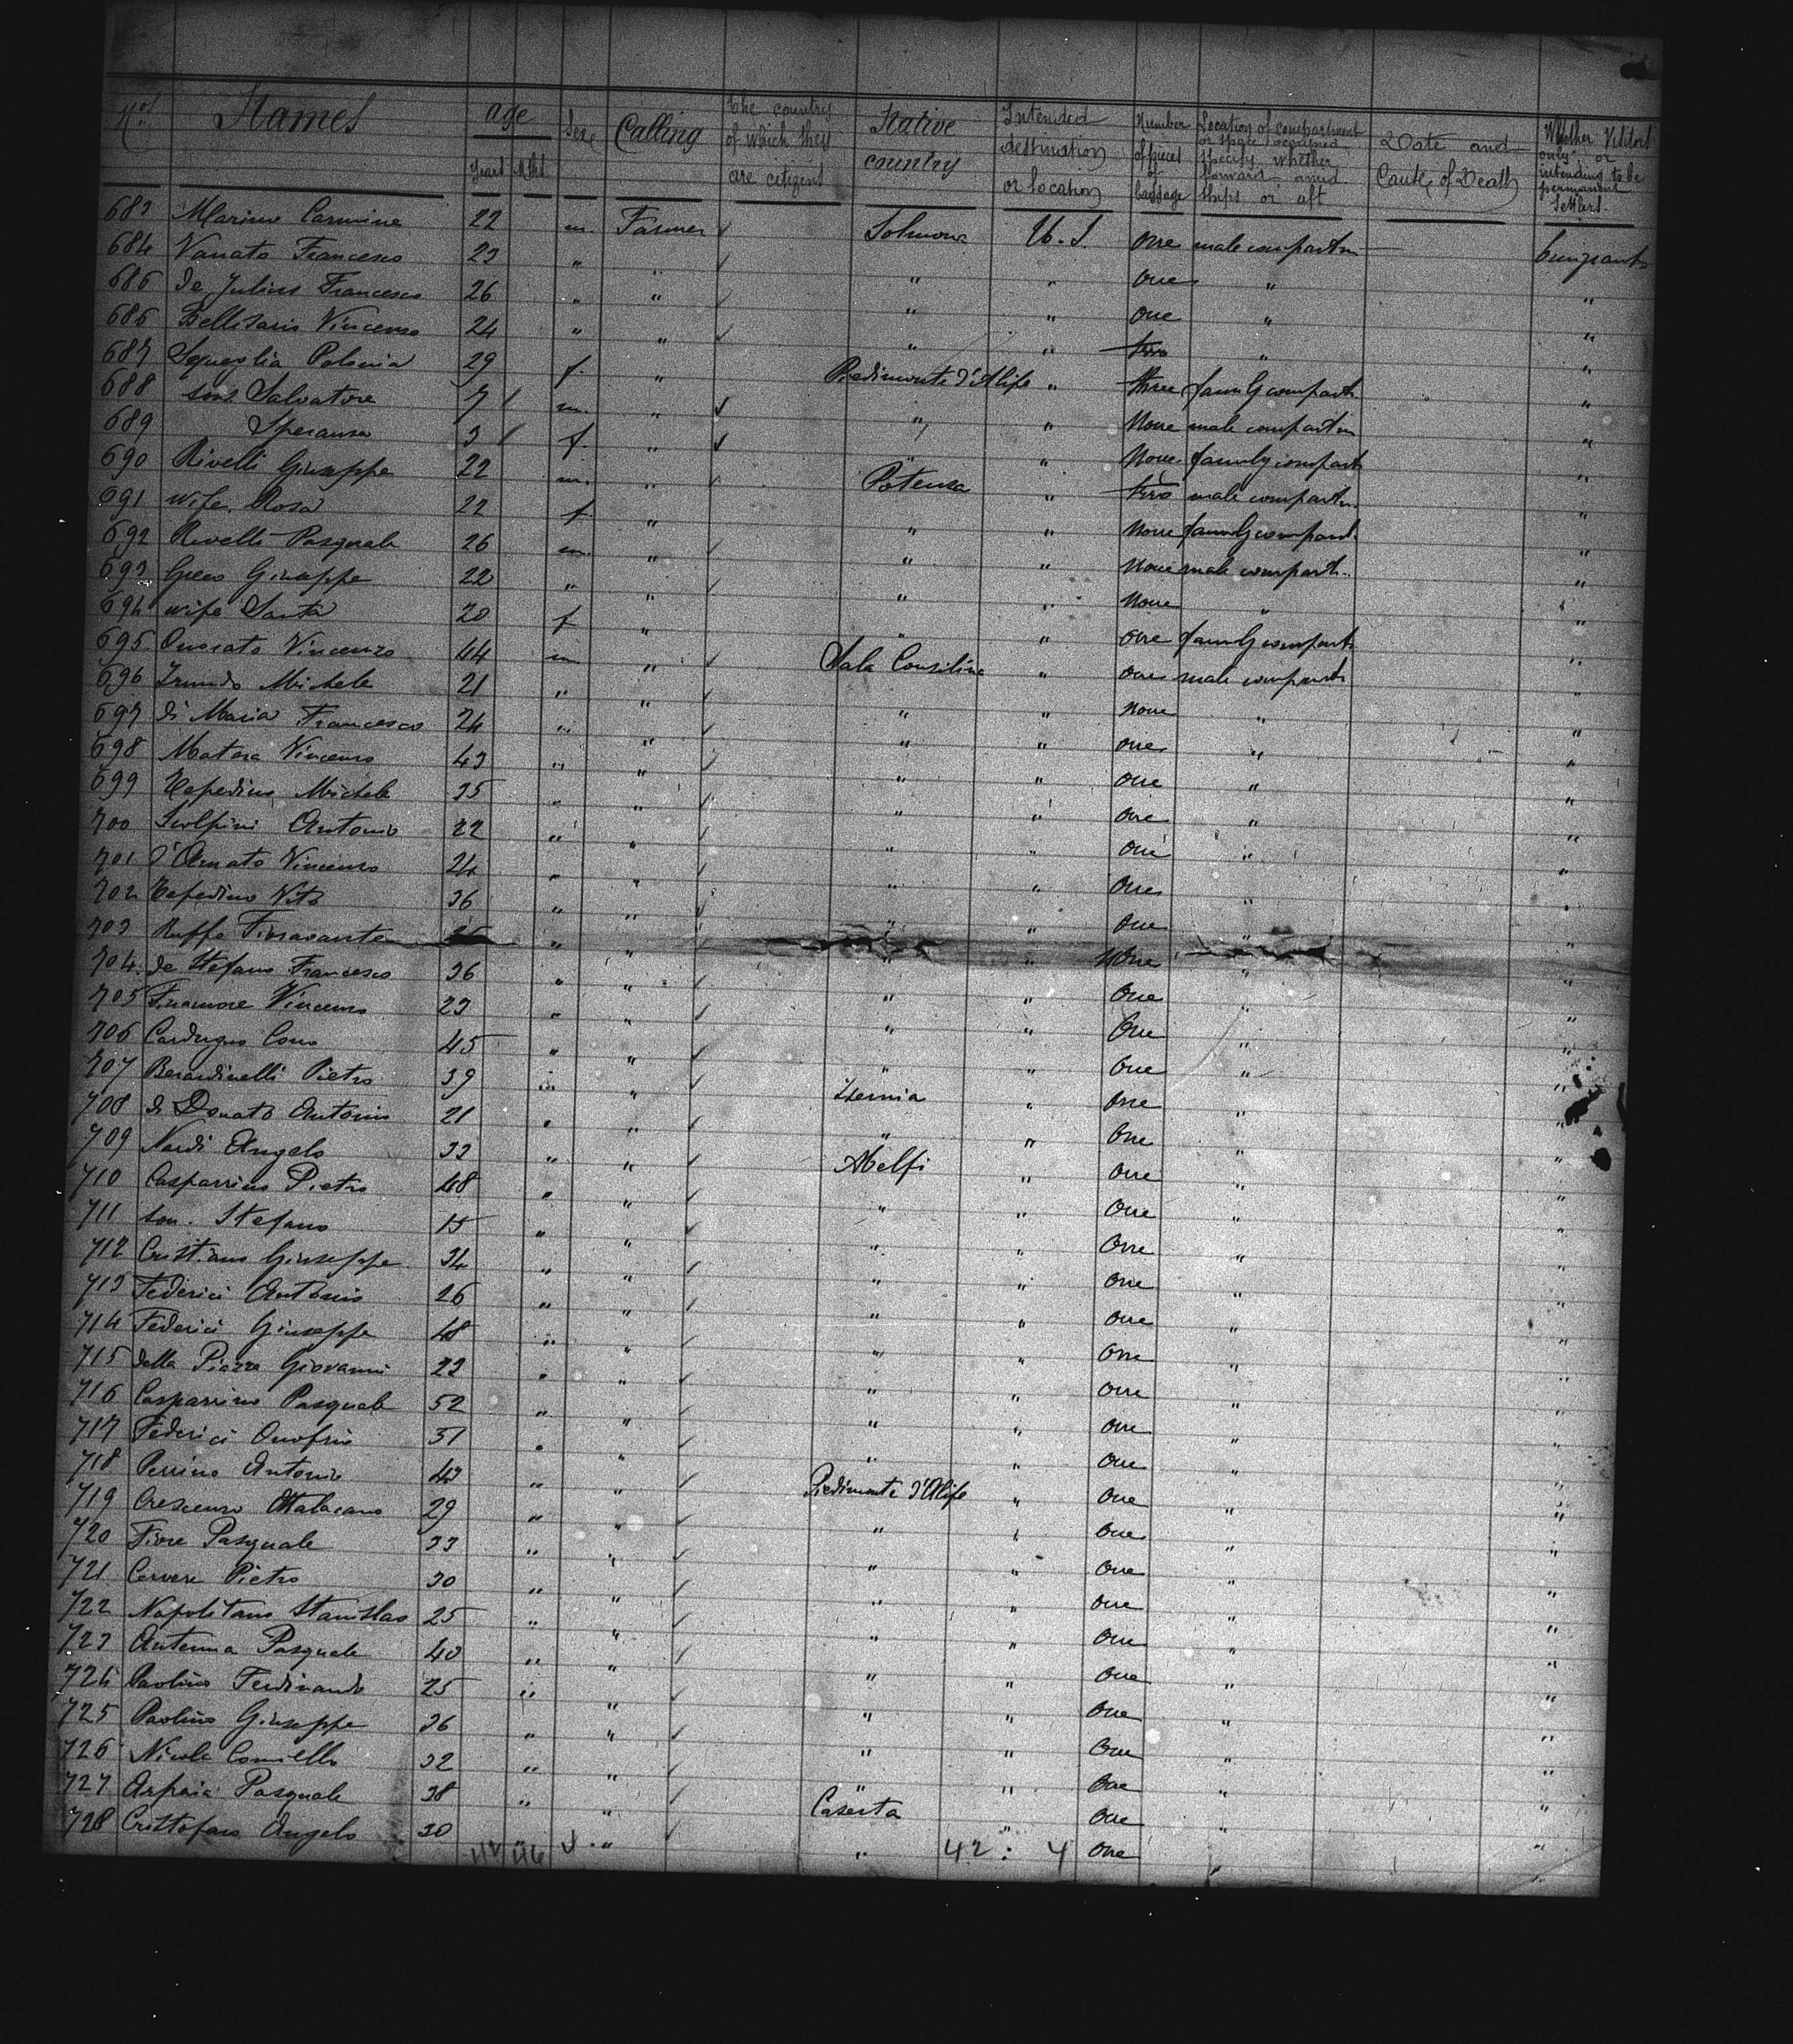 Nos Names age Years Mths Sex Calling The country of which they are citizens Native country Intended destination or location Number of pieces of baggage Location of compartment or space occupied specify whether forward amid ships or aft Date and Cause of Death Whether Visitors only or intending to be permanent Settlers.
683 Marino Carmine 22 m. Farmer Solmona U. S. one male compartm Emigrants
684 Vanato Francesco 23 " " " " one " "
686 De Julius Francesco 26 " " " " one " "
686 Bellisario Vincenzo 24 " " " " two " "
687 Sequeglia Polonia 29 f. " Piedimonte d'Alife " three family compart. "
688 son Salvatore 7 m. " " " None male compartm "
689 Speranza 3 f. " " " None family compart "
690 Rivelli Giuseppe 22 m. " Potenza " two male compartm. "
691 wife Rosa 22 f. " " " None family compart. "
692 Rivelli Pasquale 26 m. " " " None male compart. "
693 Greco Giuseppe 22 " " " " None " "
694 wife Santa 20 f " " " one family compart "
695 Onorato Vincenzo 44 m " Sala Consilina " one male compart "
696 Michele 21 " " " " None " "
697 di Maria Francesco 24 " " " " one " "
698 Matera Vincenzo 43 " " " " one " "
699 Tepedino Michele 35 " " " " one " "
700 Scolpini Antonio 22 " " " " one " "
701 d'Amato Vincenzo 24 " " " " one " "
702 Tepedino Vito 36 " " " " one " "
703 Ruffo Fioravante " " " " one " "
704 de Stefano Francesco 36 " " " " one " "
705 Finamore Vincenzo 23 " " " " one " "
706 Cardugno Cono 45 " " " " one " "
707 Berardinelli Pietro 39 " " Isernia " one " "
708 di Donato Antonio 21 " " " " one " "
709 Nardi Angelo 33 " " Melfi " one " "
710 Casparrino Pietro 48 " " " " one " "
711 son. Stefano 15 " " " " one " "
712 Cristiano Giuseppe 34 " " " " one " "
713 Federici Antonio 26 " " " " one " "
714 Federici Giuseppe 48 " " " " one " "
715 della Piazza Giovanni 23 " " " " one " "
716 Casparrino Pasquale 52 " " " " one " "
717 Federici Onofrio 31 " " " " one " "
718 Perrino Antonio 43 " " Piedimonte d'Alife " one " "
719 Crescenzo Malacano 29 " " " " one " "
720 Fiore Pasquale 33 " " " " one " "
721 Cervere Pietro 30 " " " " one " "
722 Napolitano Stanislao 25 " " " " one " "
723 Antenna Pasquale 40 " " " " one " "
724 Paolino Ferdinando 25 " " " " one " "
725 Paolino Giuseppe 36 " " " " one " "
726 Nicola Comiello 32 " " " " one " "
727 Arpaia Pasquale 38 " " Caserta " one " "
728 Cristofaro Angelo 30 " " " " one "
42 : 4